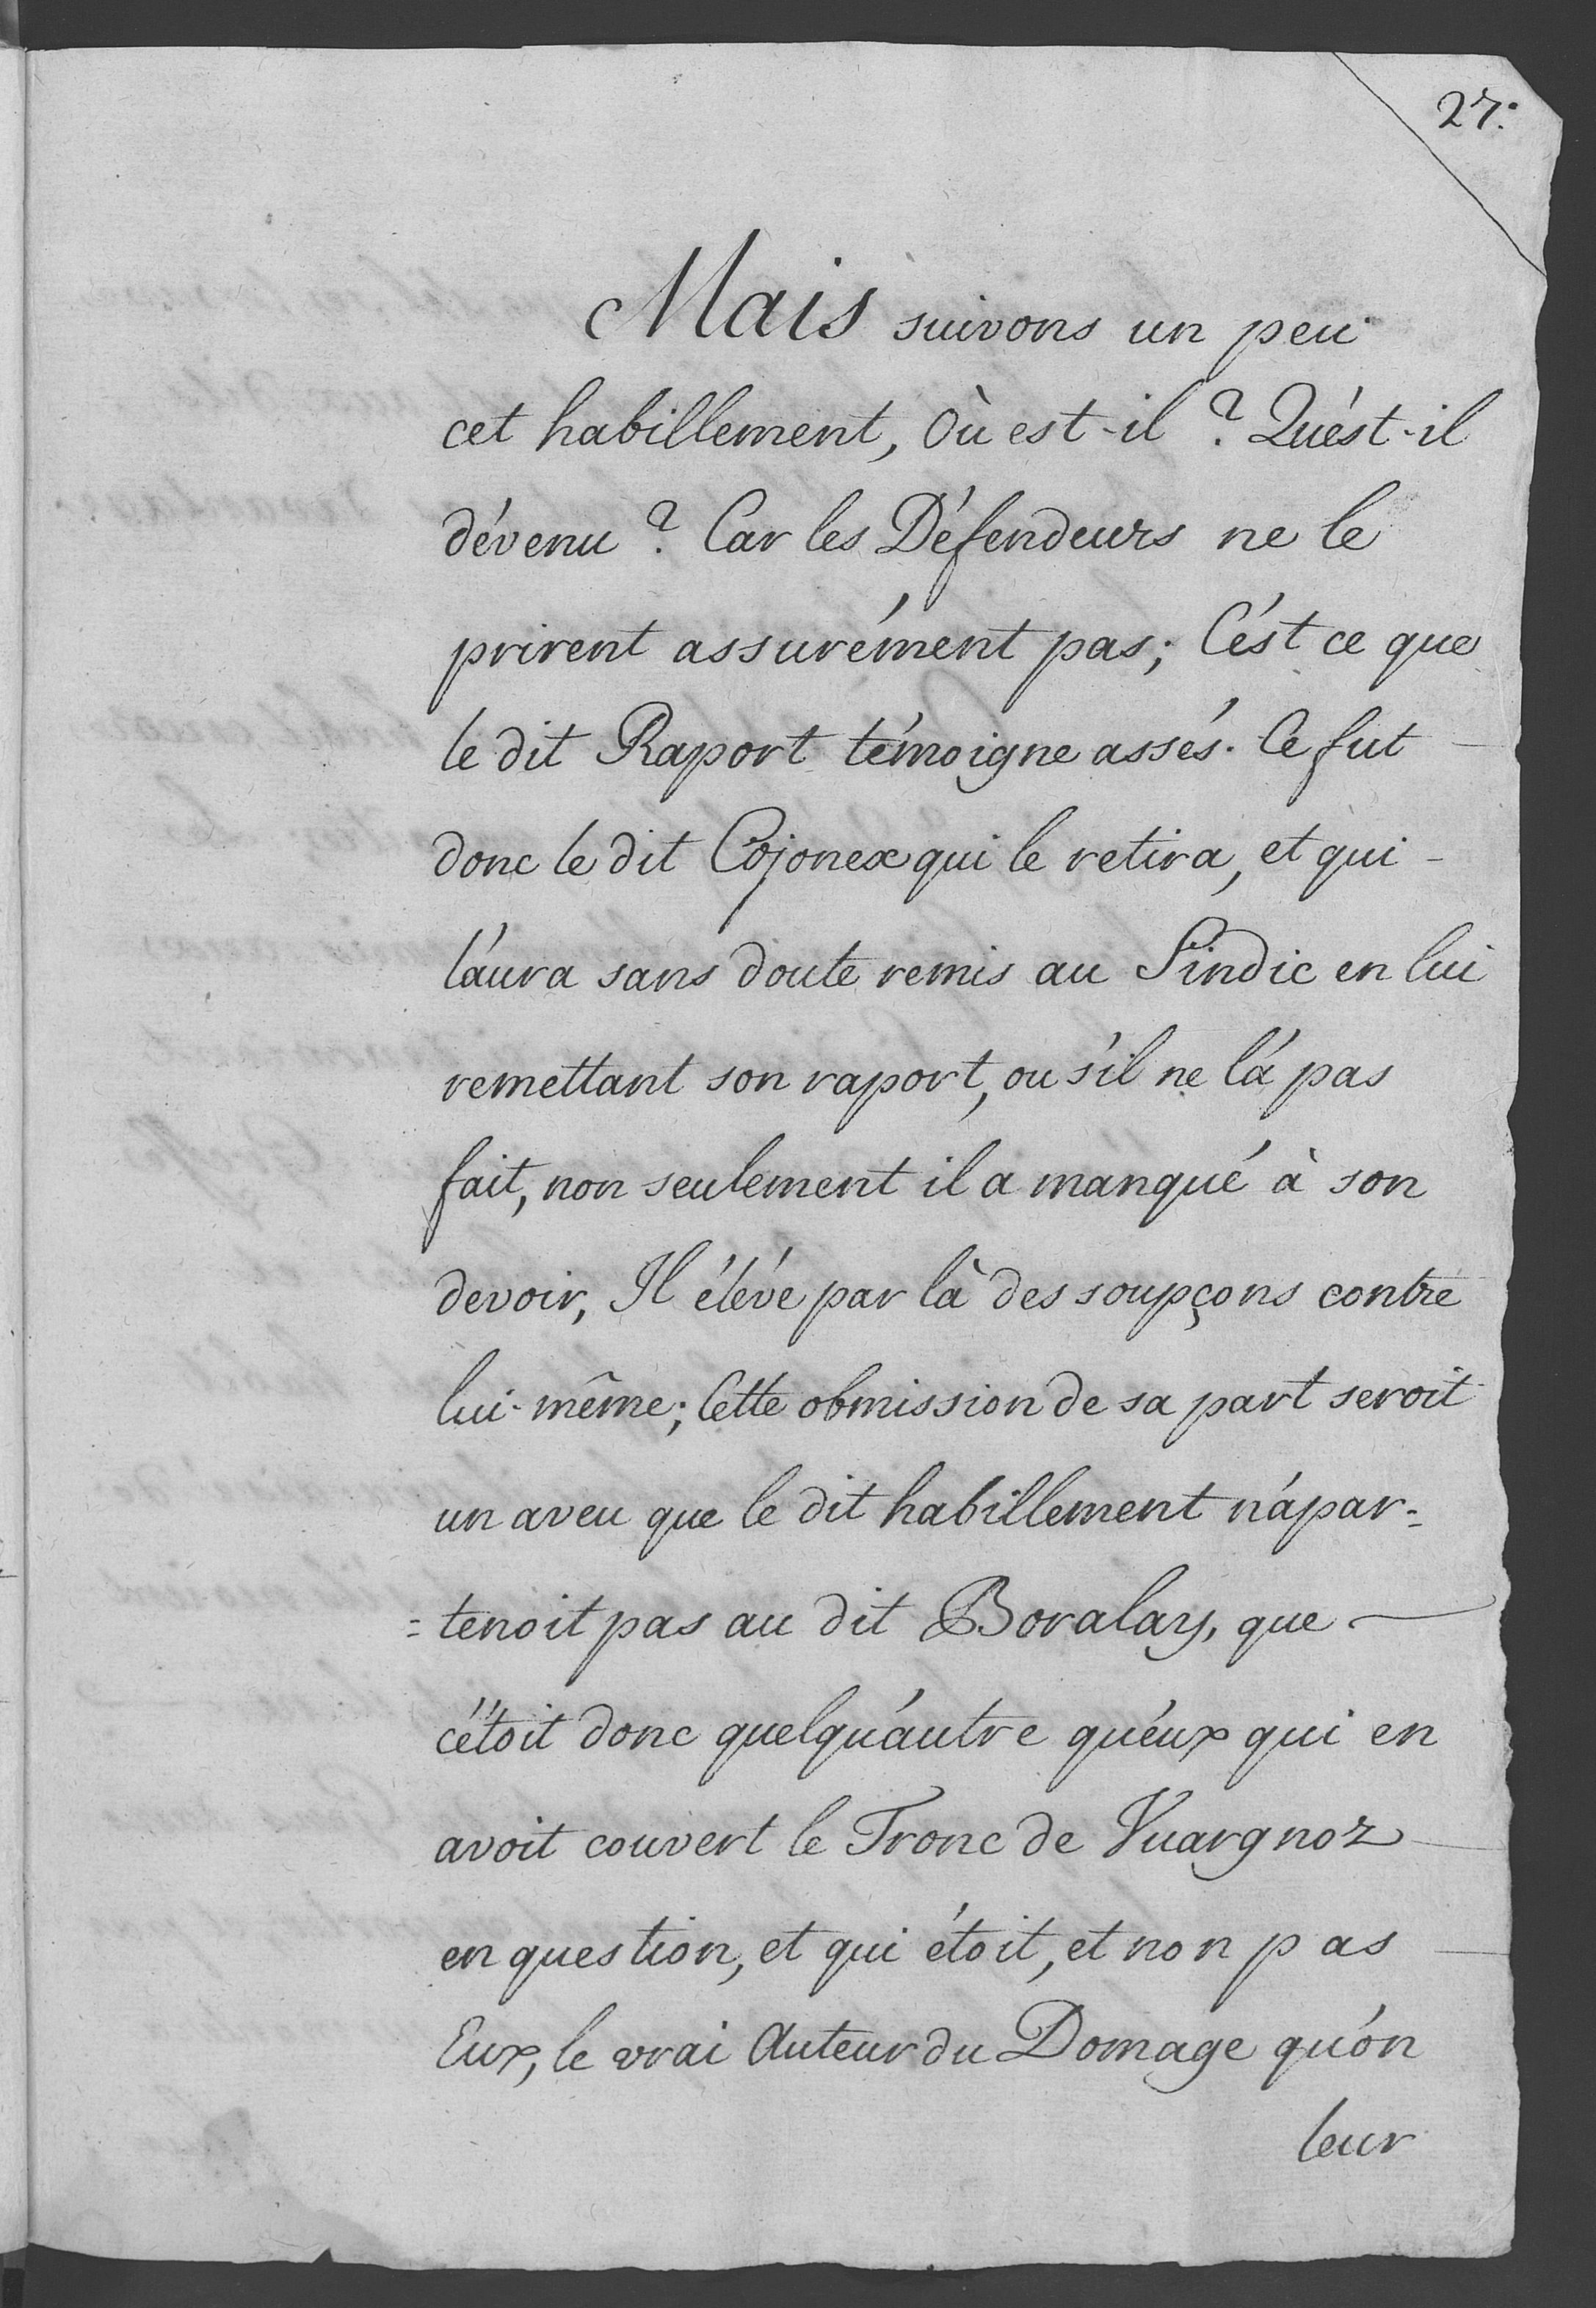 27.
Mais suivons un peu
cet habillement, Où est-il ? Qu'ést-il
dévenu ? Car les Défendeurs ne le
prirent assurément pas; C'ést ce que
le dit Raport témoigne assés. Ce fut
donc le dit Cojonex qui le retira, et qui
l'aura sans doute remis au Sindic en lui
remettant son raport, ou s'il ne l'a pas
fait, non seulement il a manqué à son
devoir, Il éléve par là des soupçons contre
lui-même; Cette obmission de sa part seroit
un aveu que le dit habillement n'apar=
=tenoit pas au dit Boralay, que
c'étoit donc quelqu'autre qu'eux qui en
avoit couvert le Tronc de Vuargnoz
en question, et qui étoit, et non pas
Eux, le vrai Auteur du Domage qu'on
leur